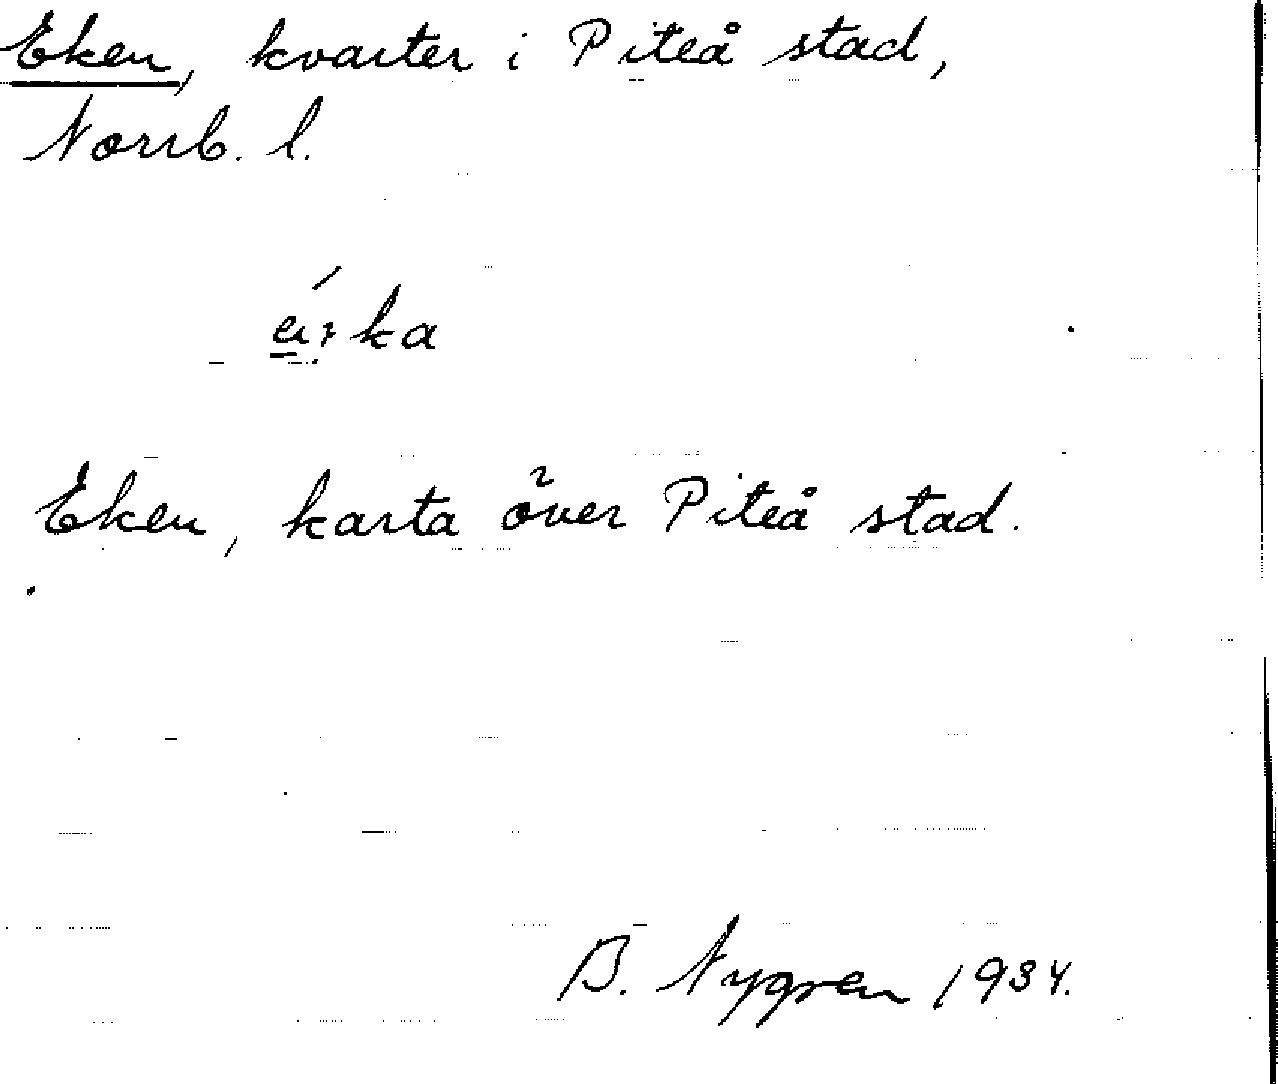 Eken, kvarter i Piteå stad,
Norrb. l.
éi:ka
Eken, karta över Piteå stad.
B. Nygren 1934.